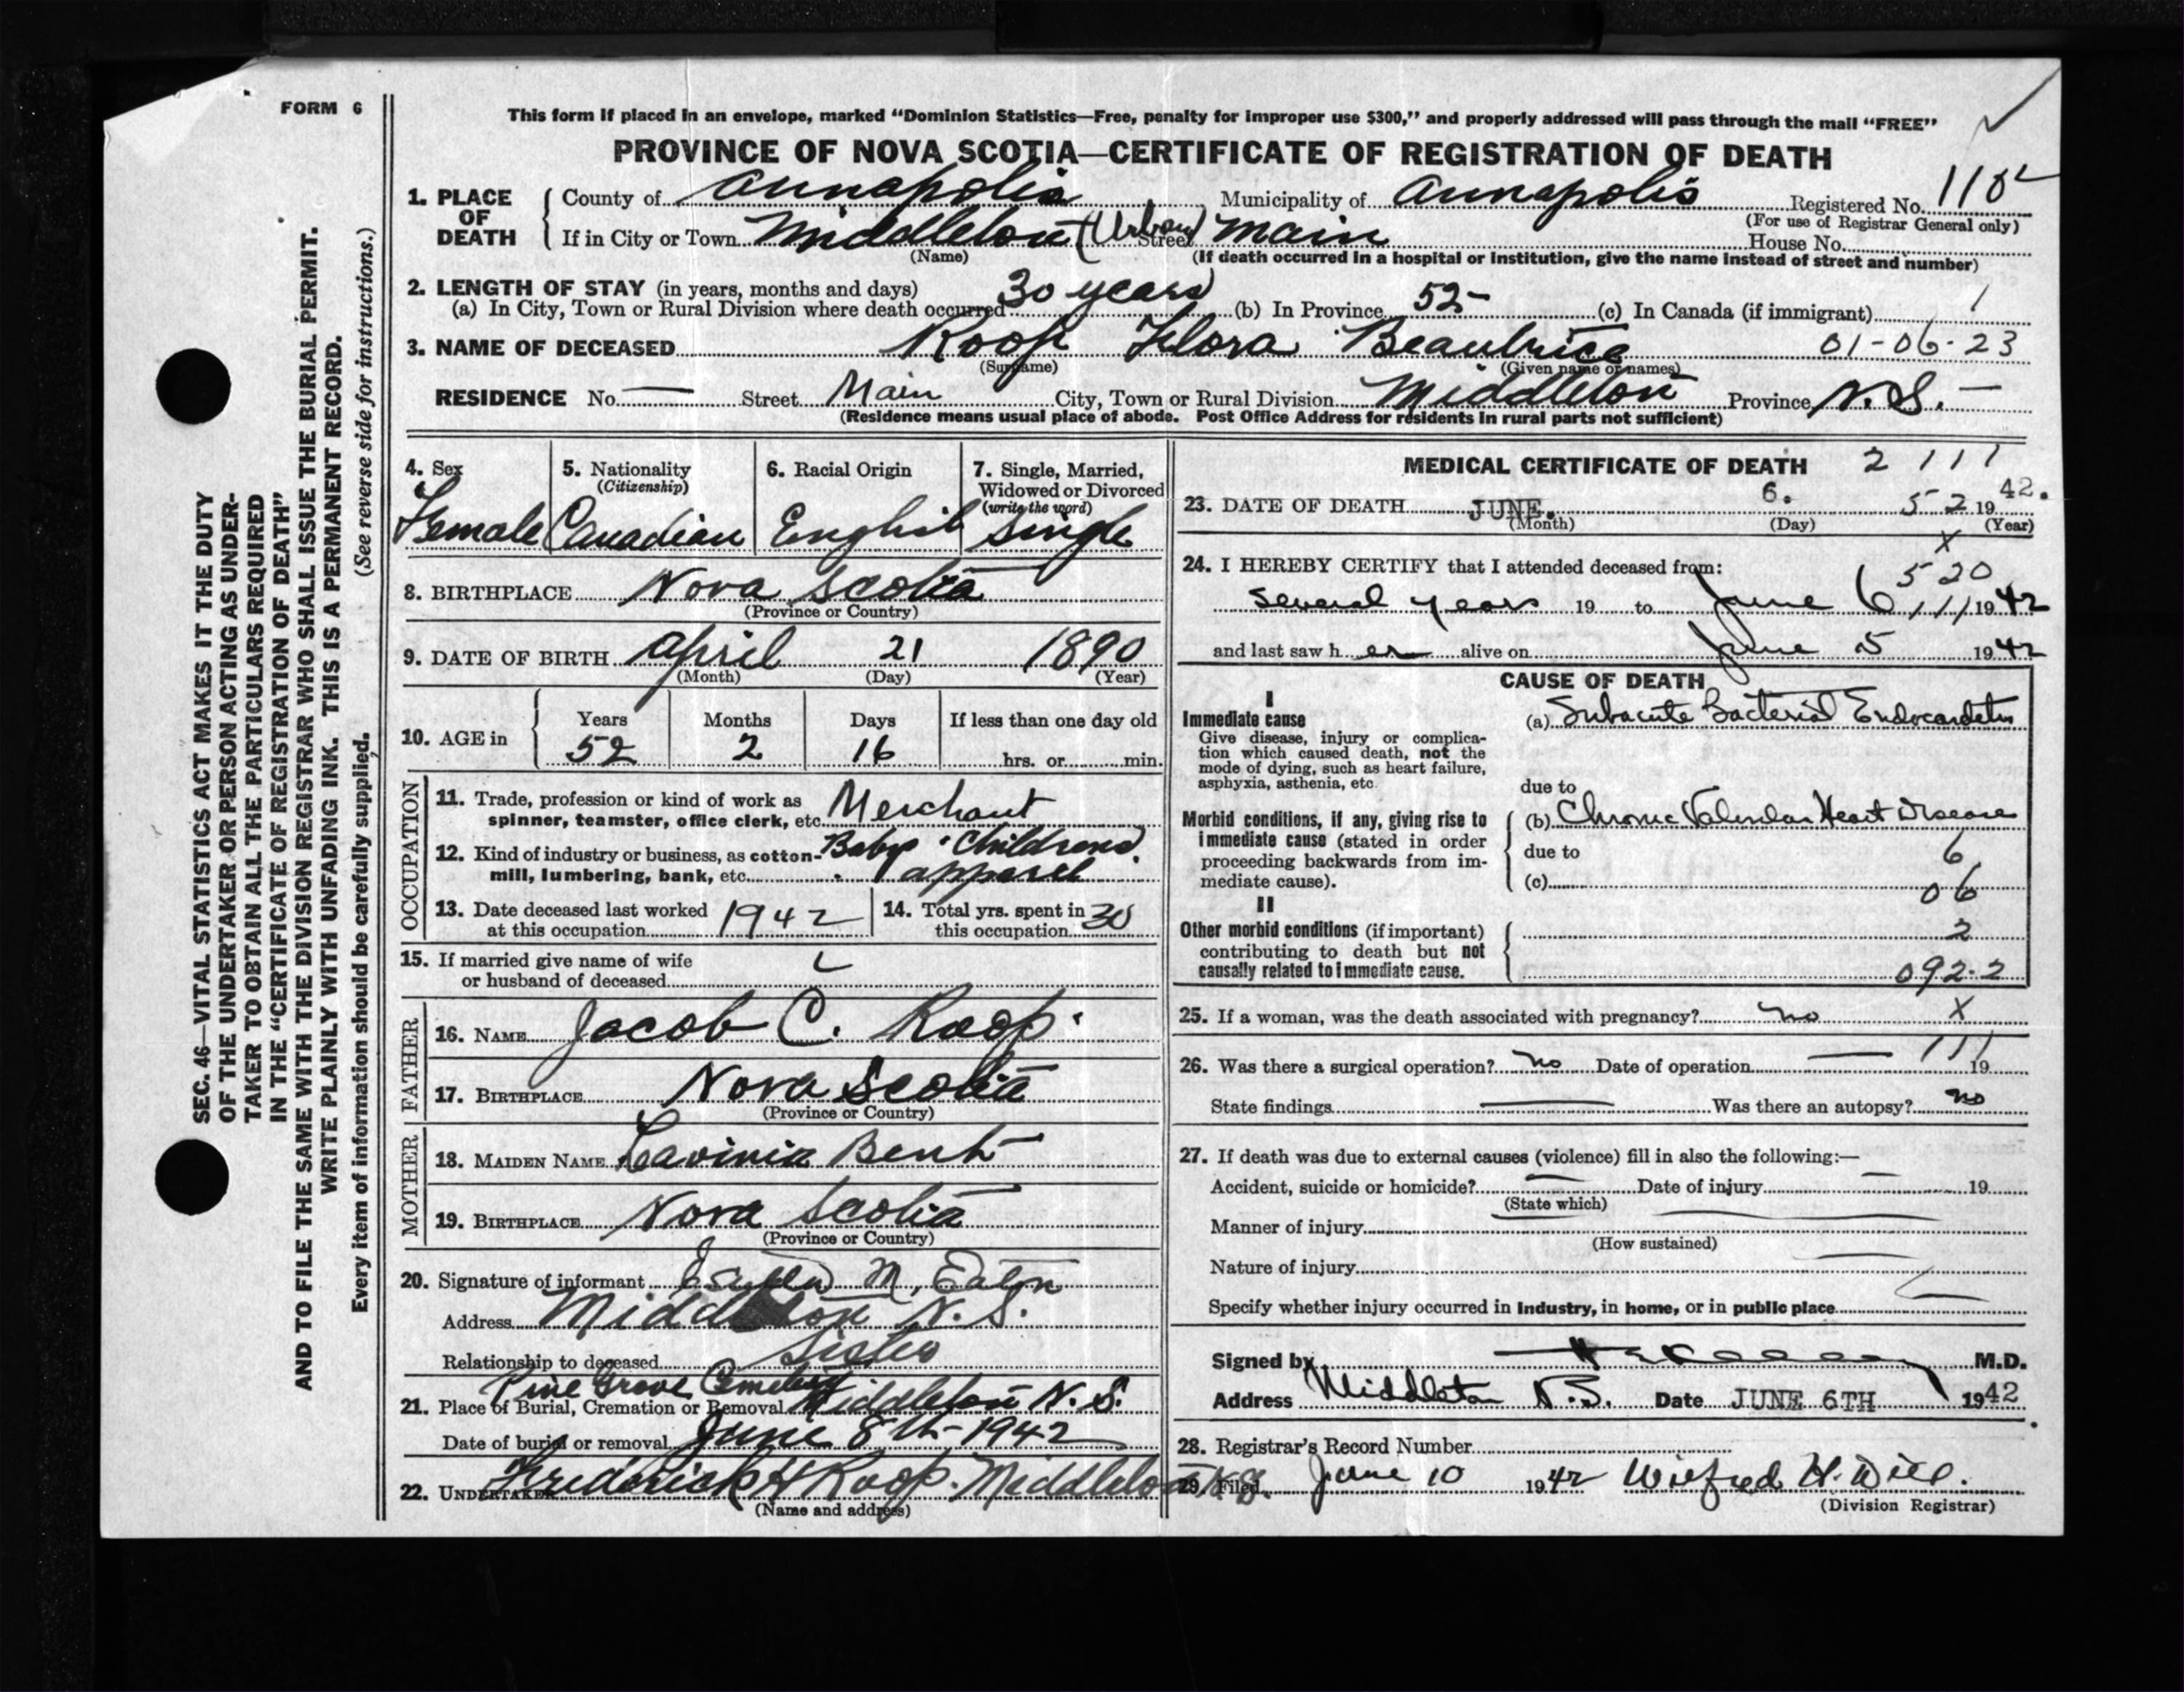 FORM 6
This form if placed in an envelope, marked “Dominion Statistics—Free, penalty for improper use $300,” and properly addressed will pass through the mail “FREE”
PROVINCE OF NOVA SCOTIA—CERTIFICATE OF REGISTRATION OF DEATH
1. PLACE OF DEATH
County of Annapolis Municipality of Annapolis Registered No. 1102
(For use of Registrar General only)
If in City or Town Middleton (Urban) Street Main House No.
(Name) (If death occurred in a hospital or institution, give the name instead of street and number)
2. LENGTH OF STAY (in years, months and days)
(a) In City, Town or Rural Division where death occurred 30 years (b) In Province 52- (c) In Canada (if immigrant) 1
3. NAME OF DECEASED Roop Flora Beautrice 01-06-23
(Surname) (Given name or names)
RESIDENCE No. — Street Main City, Town or Rural Division Middleton Province N.S. —
(Residence means usual place of abode. Post Office Address for residents in rural parts not sufficient)
SEC. 46—VITAL STATISTICS ACT MAKES IT THE DUTY
OF THE UNDERTAKER OR PERSON ACTING AS UNDER-
TAKER TO OBTAIN ALL THE PARTICULARS REQUIRED
IN THE “CERTIFICATE OF REGISTRATION OF DEATH”
AND TO FILE THE SAME WITH THE DIVISION REGISTRAR WHO SHALL ISSUE THE BURIAL PERMIT.
WRITE PLAINLY WITH UNFADING INK. THIS IS A PERMANENT RECORD.
Every item of information should be carefully supplied. (See reverse side for instructions.)
4. Sex
Female
5. Nationality
(Citizenship)
Canadian
6. Racial Origin
English
7. Single, Married,
Widowed or Divorced
(write the word)
Single
8. BIRTHPLACE Nova Scotia
(Province or Country)
9. DATE OF BIRTH April 21 1890
(Month) (Day) (Year)
10. AGE in
Years Months Days If less than one day old
52 2 16 hrs. or min.
OCCUPATION
11. Trade, profession or kind of work as
spinner, teamster, office clerk, etc. Merchant
12. Kind of industry or business, as cotton-
mill, lumbering, bank, etc. Baby Childrens
apparel
13. Date deceased last worked
at this occupation 1942
14. Total yrs. spent in
this occupation 30
15. If married give name of wife
or husband of deceased
FATHER
16. NAME Jacob C. Roop.
17. BIRTHPLACE Nova Scotia
(Province or Country)
MOTHER
18. MAIDEN NAME Lavinia Bent
19. BIRTHPLACE Nova Scotia
(Province or Country)
20. Signature of informant M. Eaton
Address Middleton N.S.
Relationship to deceased Sister
Pine Grove Cemetery
21. Place of Burial, Cremation or Removal Middleton N.S.
Date of burial or removal June 8th-1942
22. UNDERTAKER Frederick H Roop. Middleton N.S.
(Name and address)
MEDICAL CERTIFICATE OF DEATH 2 111
23. DATE OF DEATH JUNE. 6. 52 1942.
(Month) (Day) (Year)
X
24. I HEREBY CERTIFY that I attended deceased from: 520
several years 19 to June 6 111 1942
and last saw her alive on June 5 1942
CAUSE OF DEATH
I
Immediate cause
Give disease, injury or complica-
tion which caused death, not the
mode of dying, such as heart failure,
asphyxia, asthenia, etc.
(a) Subacute Bacterial Endocarditis
due to
Morbid conditions, if any, giving rise to
immediate cause (stated in order
proceeding backwards from im-
mediate cause).
(b) Chronic Valvular Heart Disease
due to 6
(c) 06
II
Other morbid conditions (if important)
contributing to death but not
causally related to immediate cause.
2
092-2
25. If a woman, was the death associated with pregnancy? no X
26. Was there a surgical operation? no Date of operation — 111 19
State findings — Was there an autopsy? no
27. If death was due to external causes (violence) fill in also the following:—
Accident, suicide or homicide? — Date of injury — 19
(State which)
Manner of injury —
(How sustained)
Nature of injury —
Specify whether injury occurred in industry, in home, or in public place
Signed by M.D.
Address Middleton N.S. Date JUNE 6TH 1942
28. Registrar's Record Number
29. Filed June 10 1942 Wilfred H.
(Division Registrar)